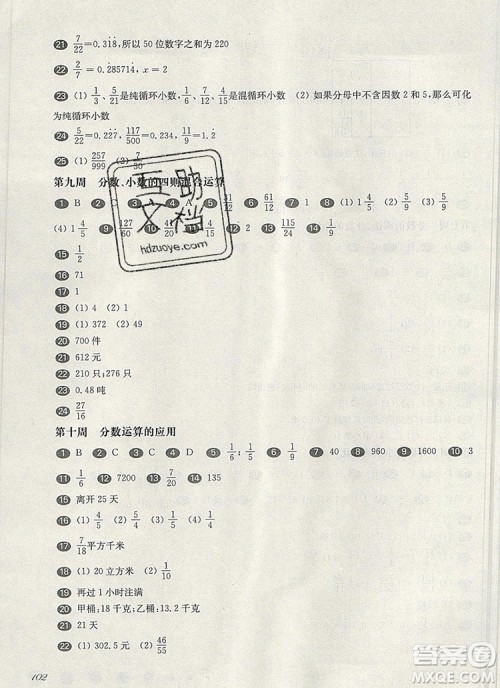 21 7/22=0.318,所以 50 位数字之和为 220
22 2/7=0.285714,x=2
23 (1) 1/3、5/21是纯循环小数, 是混循环小数 (2) 如果分母中不含因数 2 和 5,那么可化
为纯循环小数
24 5/22=0.227,117/500=0.234,11/9=1.2
25 (1) 257/999 (2) 7/30
第九周 分数、小数的四则混合运算
1 B 2 C 4 A
(4) 1 4/5 127/60 12 2 13 115/24 14
15 1/2
16 71
17 1
18 (1) 4 (2) 1
19 (1) 372 (2) 19
20 700 件
21 612 元
22 210 只;276 只
23 0.48 吨
24 27/16
第十周 分数运算的应用
1 B 2 C 3 C 4 D 5 1/6;1/5 6 1/9 7 40 8 960 9 1600 10 3
11 1/6 12 7200 13 7/20 14 135
15 离开 25 天
16 (1) 4/5 (2) 4/5 (3) 1/5 (4) 1/5
17 7/18平方千米
18 (1) 20 立方米 (2) 1/10
19 再过 1 小时注满
20 甲桶:18 千克;乙桶:13.2 千克
21 21 天
22 (1) 302.5 元 (2) 46/55
102
互助文档
hdzuoye.com
答案圈
MXQE.COM